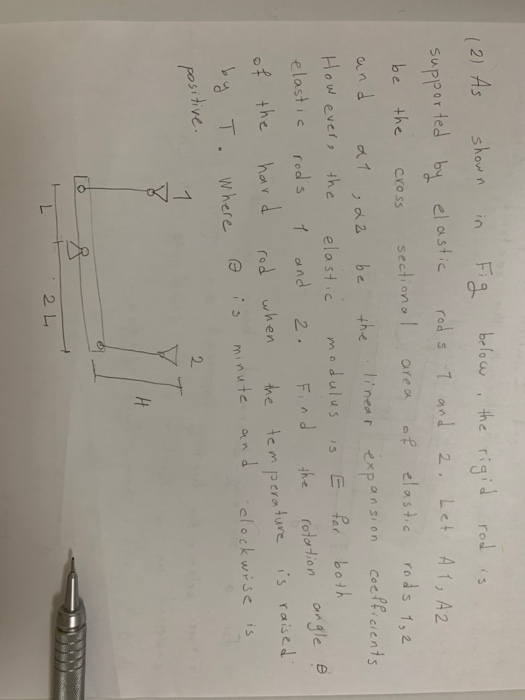 (2) As shown in Fig below, the rigid rod is
supported by elastic rods 1 and 2. Let A1, A2
be the cross sectional area of elastic rods 1,2
and α1, α2 be the linear expansion coefficients
However, the elastic modulus is E for both
elastic rods 1 and 2. Find the rotation angle θ
of the hard rod when the temperature is raised
by T. Where θ is minute and clockwise is
positive.
1
2
H
L
2L